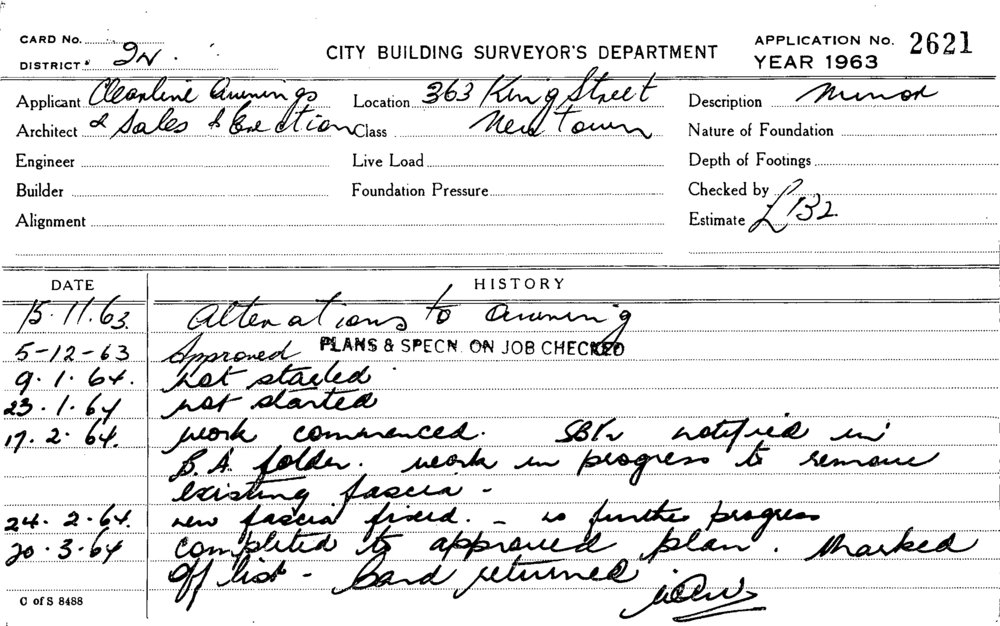 CARD No.
DISTRICT 2N.
CITY BUILDING SURVEYOR'S DEPARTMENT
APPLICATION No. 2621
YEAR 1963
Applicant Cleanline Awnings Location 363 King Street Description Minor
Architect & Sales & Erection Class Newtown Nature of Foundation
Engineer Live Load Depth of Footings
Builder Foundation Pressure Checked by
Alignment Estimate £132.
DATE HISTORY
15.11.63. Alterations to awning
5-12-63 Approved PLANS & SPECN. ON JOB CHECKED
9.1.64. Not started
23.1.64 not started
17.2.64. work commenced. notified in
B.A. folder. work in progress to remove
existing fascia -
24.2.64. new fascia fixed. - no further progress
20.3.64 completed to approved plan. Marked
off list - Card returned
C of S 8488